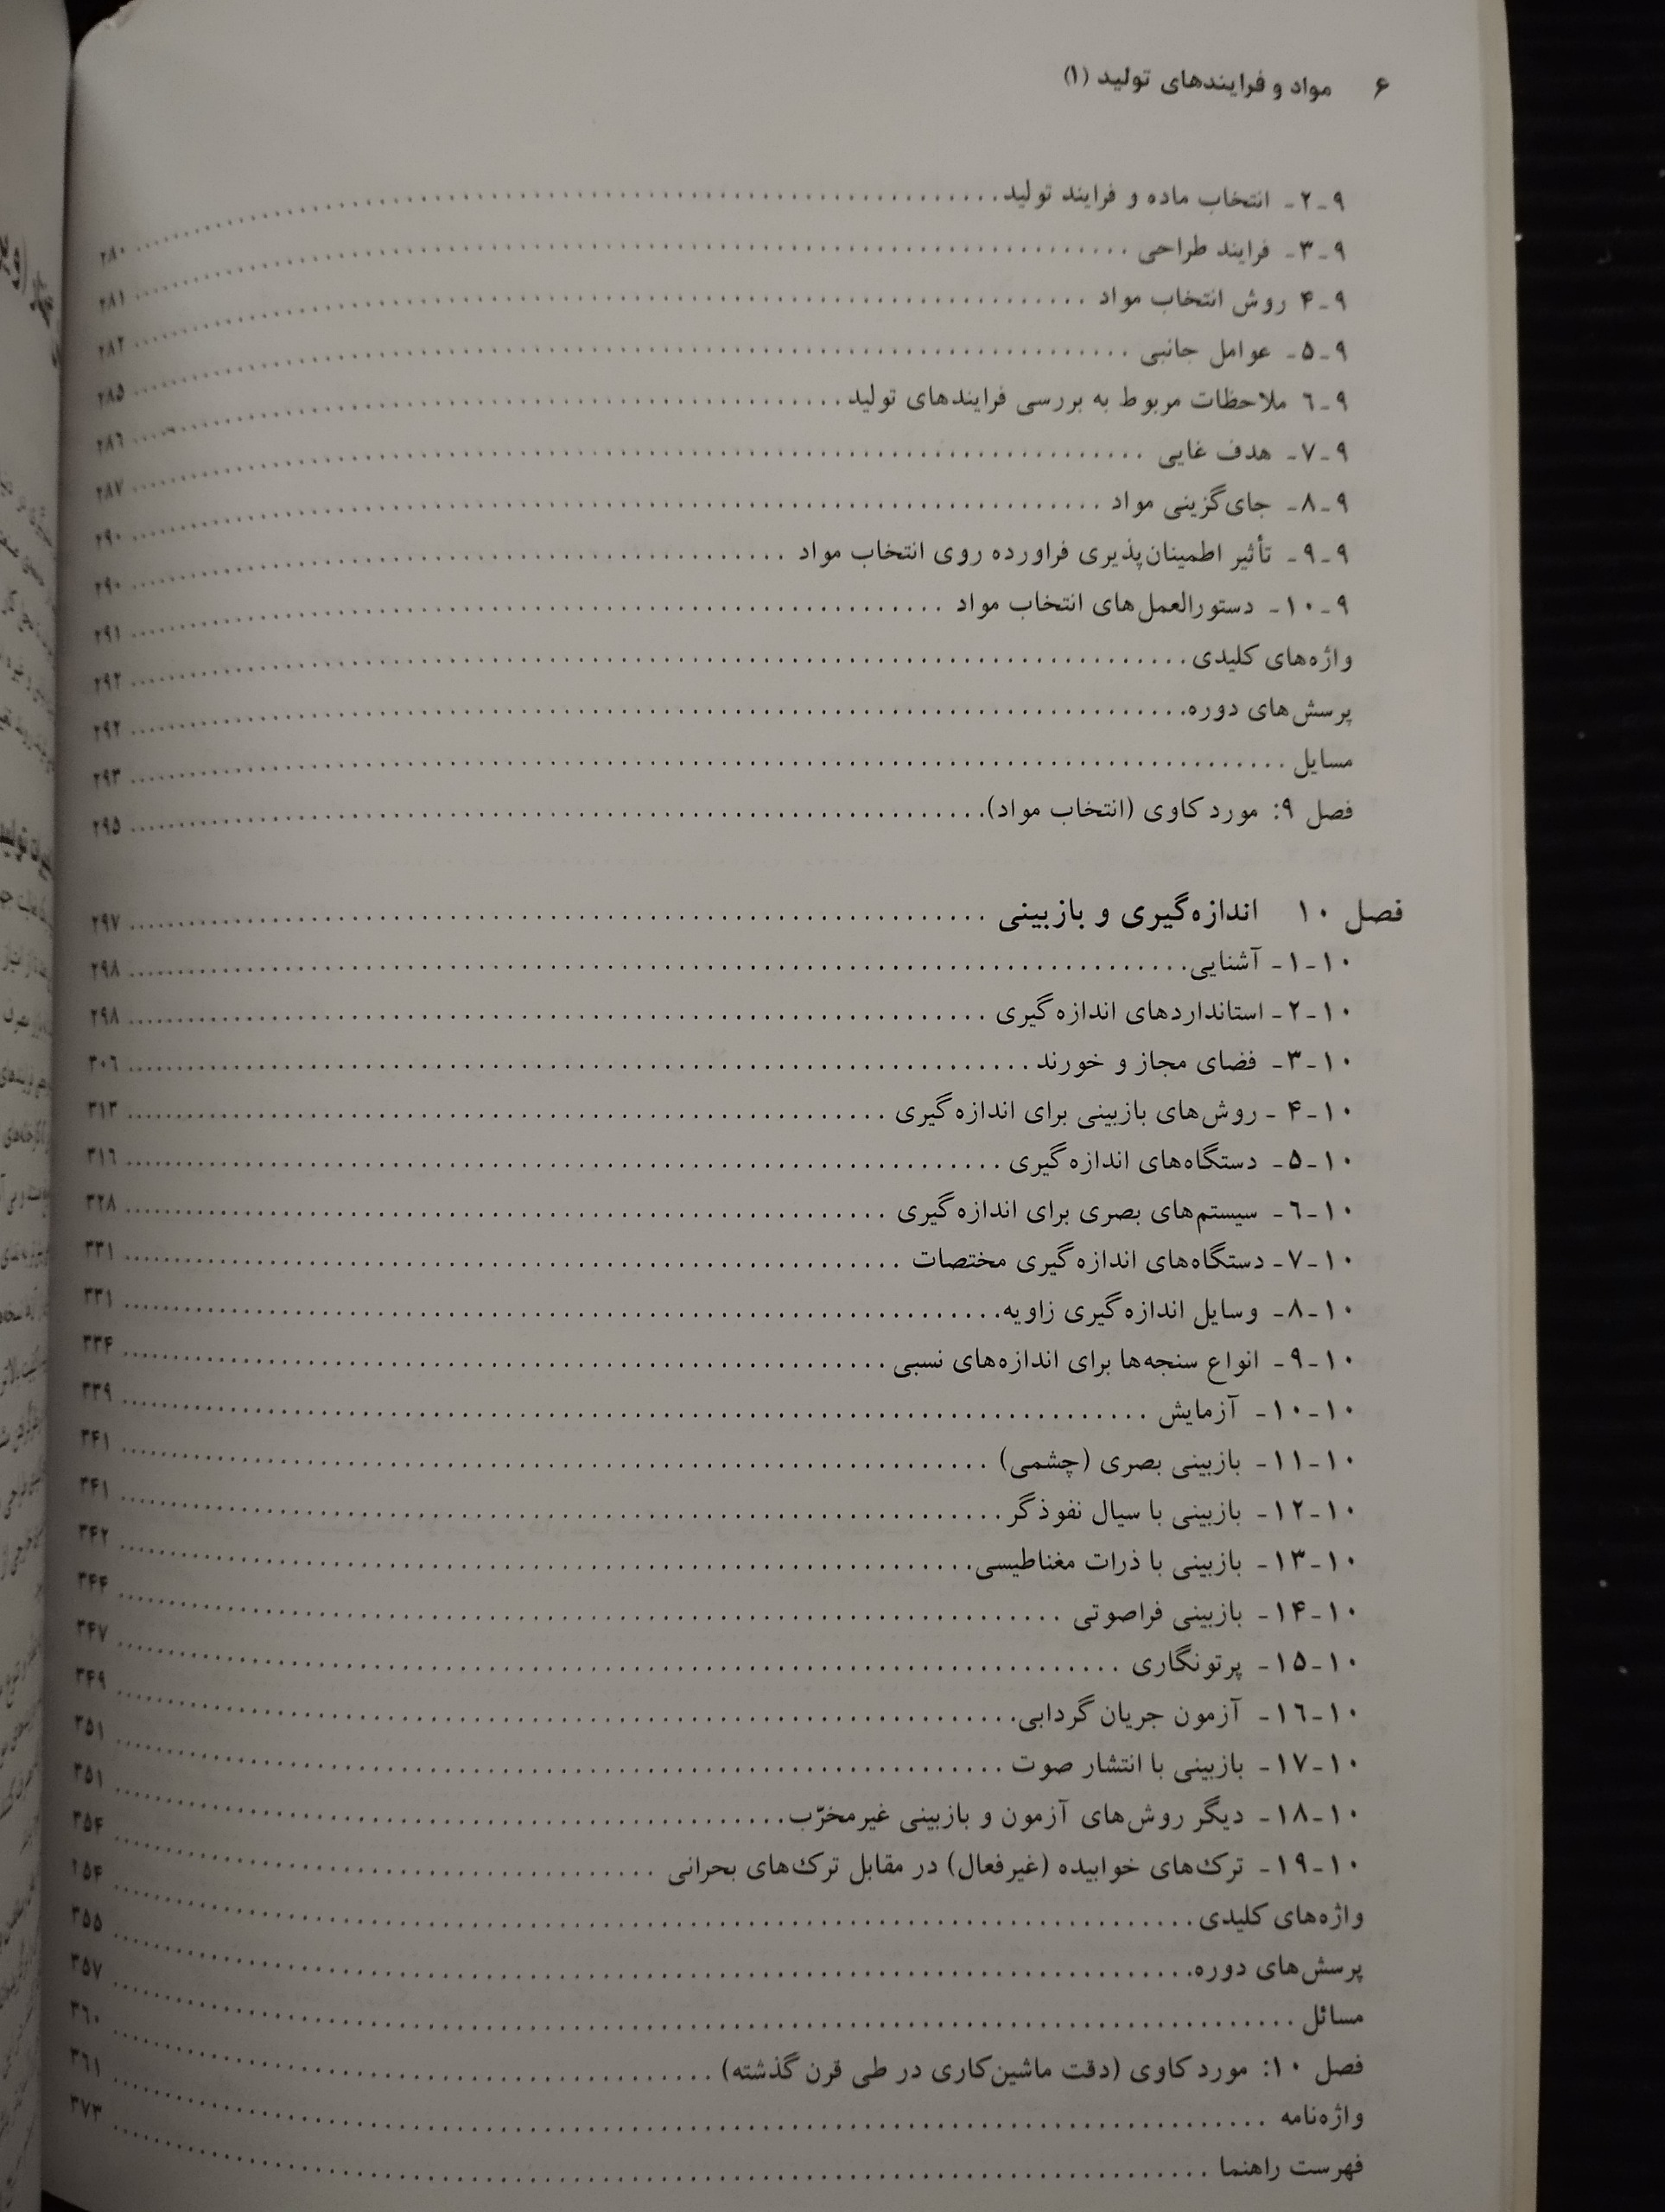 ۶ مواد و فرایندهای تولید (۱)
۹-۲- انتخاب ماده و فرایند تولید ........ ۲۸۰
۹-۳- فرایند طراحی ........ ۲۸۱
۹-۴ روش انتخاب مواد ........ ۲۸۲
۹-۵- عوامل جانبی ........ ۲۸۵
۹-٦ ملاحظات مربوط به بررسی فرایندهای تولید ........ ۲۸٦
۹-۷- هدف غایی ........ ۲۸۷
۹-۸- جای‌گزینی مواد ........ ۲۹۰
۹-۹- تأثیر اطمینان‌پذیری فراورده روی انتخاب مواد ........ ۲۹۰
۹-۱۰- دستورالعمل‌های انتخاب مواد ........ ۲۹۱
واژه‌های کلیدی ........ ۲۹۲
پرسش‌های دوره ........ ۲۹۲
مسایل ........ ۲۹۳
فصل ۹: مورد کاوی (انتخاب مواد) ........ ۲۹۵
فصل ۱۰ اندازه‌گیری و بازبینی ........ ۲۹۷
۱۰-۱- آشنایی ........ ۲۹۸
۱۰-۲- استانداردهای اندازه‌گیری ........ ۲۹۸
۱۰-۳- فضای مجاز و خورند ........ ۳۰٦
۱۰-۴- روش‌های بازبینی برای اندازه‌گیری ........ ۳۱۳
۱۰-۵- دستگاه‌های اندازه‌گیری ........ ۳۱٦
۱۰-٦- سیستم‌های بصری برای اندازه‌گیری ........ ۳۲۸
۱۰-۷- دستگاه‌های اندازه‌گیری مختصات ........ ۳۳۱
۱۰-۸- وسایل اندازه‌گیری زاویه ........ ۳۳۱
۱۰-۹- انواع سنجه‌ها برای اندازه‌های نسبی ........ ۳۳۴
۱۰-۱۰- آزمایش ........ ۳۳۹
۱۰-۱۱- بازبینی بصری (چشمی) ........ ۳۴۱
۱۰-۱۲- بازبینی با سیال نفوذگر ........ ۳۴۱
۱۰-۱۳- بازبینی با ذرات مغناطیسی ........ ۳۴۲
۱۰-۱۴- بازبینی فراصوتی ........ ۳۴۴
۱۰-۱۵- پرتونگاری ........ ۳۴۷
۱۰-۱٦- آزمون جریان گردابی ........ ۳۴۹
۱۰-۱۷- بازبینی با انتشار صوت ........ ۳۵۱
۱۰-۱۸- دیگر روش‌های آزمون و بازبینی غیرمخرّب ........ ۳۵۱
۱۰-۱۹- ترک‌های خوابیده (غیرفعال) در مقابل ترک‌های بحرانی ........ ۳۵۴
واژه‌های کلیدی ........ ۲۵۴
پرسش‌های دوره ........ ۳۵۵
مسائل ........ ۳۵۷
فصل ۱۰: مورد کاوی (دقت ماشین‌کاری در طی قرن گذشته) ........ ۳٦۰
واژه‌نامه ........ ۳٦۱
فهرست راهنما ........ ۳۷۳